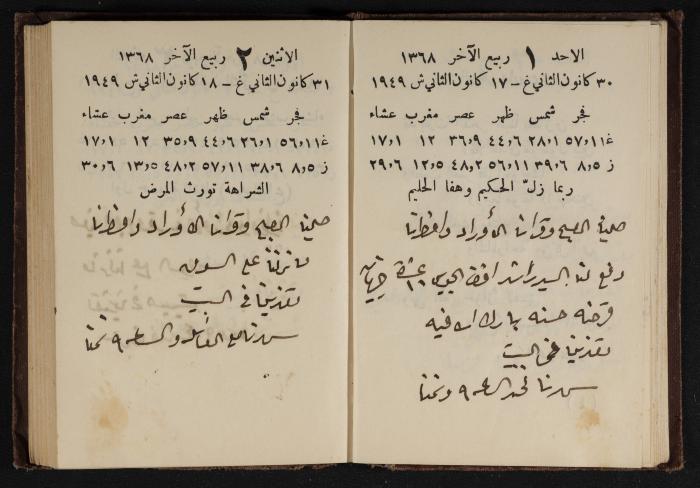 الاحد ١ ربيع الآخر ١٣٦٨
٣٠ كانون الثاني غ – ١٧ كانون الثاني ش ١٩٤٩
فجر شمس ظهر عصر مغرب عشاء
غ ٥٧،١١ ٢٨،١ ٤٤،٦ ٣٦،٩ ١٢ ١٧،١
ز ٨،٥ ٣٩،٦ ٥٦،١١ ٤٨،٢ ١٢،٥ ٢٩،٦
ربما زلّ الحكيم وهفا الحليم
صلينا الصبح وقرأنا الأوراد وافطرنا
دفع لنا السيد راشد جنيه
قرضه حسنه بارك الله فيه
تغدينا في البيت
سهرنا لحد الساعه ٩ ونمنا
الاثنين ٢ ربيع الآخر ١٣٦٨
٣١ كانون الثاني غ – ١٨ كانون الثاني ش ١٩٤٩
فجر شمس ظهر عصر مغرب عشاء
غ ٥٦،١١ ٢٦،١ ٤٤،٦ ٣٥،٩ ١٢ ١٧،١
ز ٨،٥ ٣٨،٦ ٥٧،١١ ٤٨،٢ ١٣،٥ ٣٠،٦
الشراهة تورث المرض
صلينا الصبح وقرأنا الأوراد وافطرنا
ونزلنا على السوق
تغدينا في البيت
سهرنا مع العائله والساعه ٩ نمنا